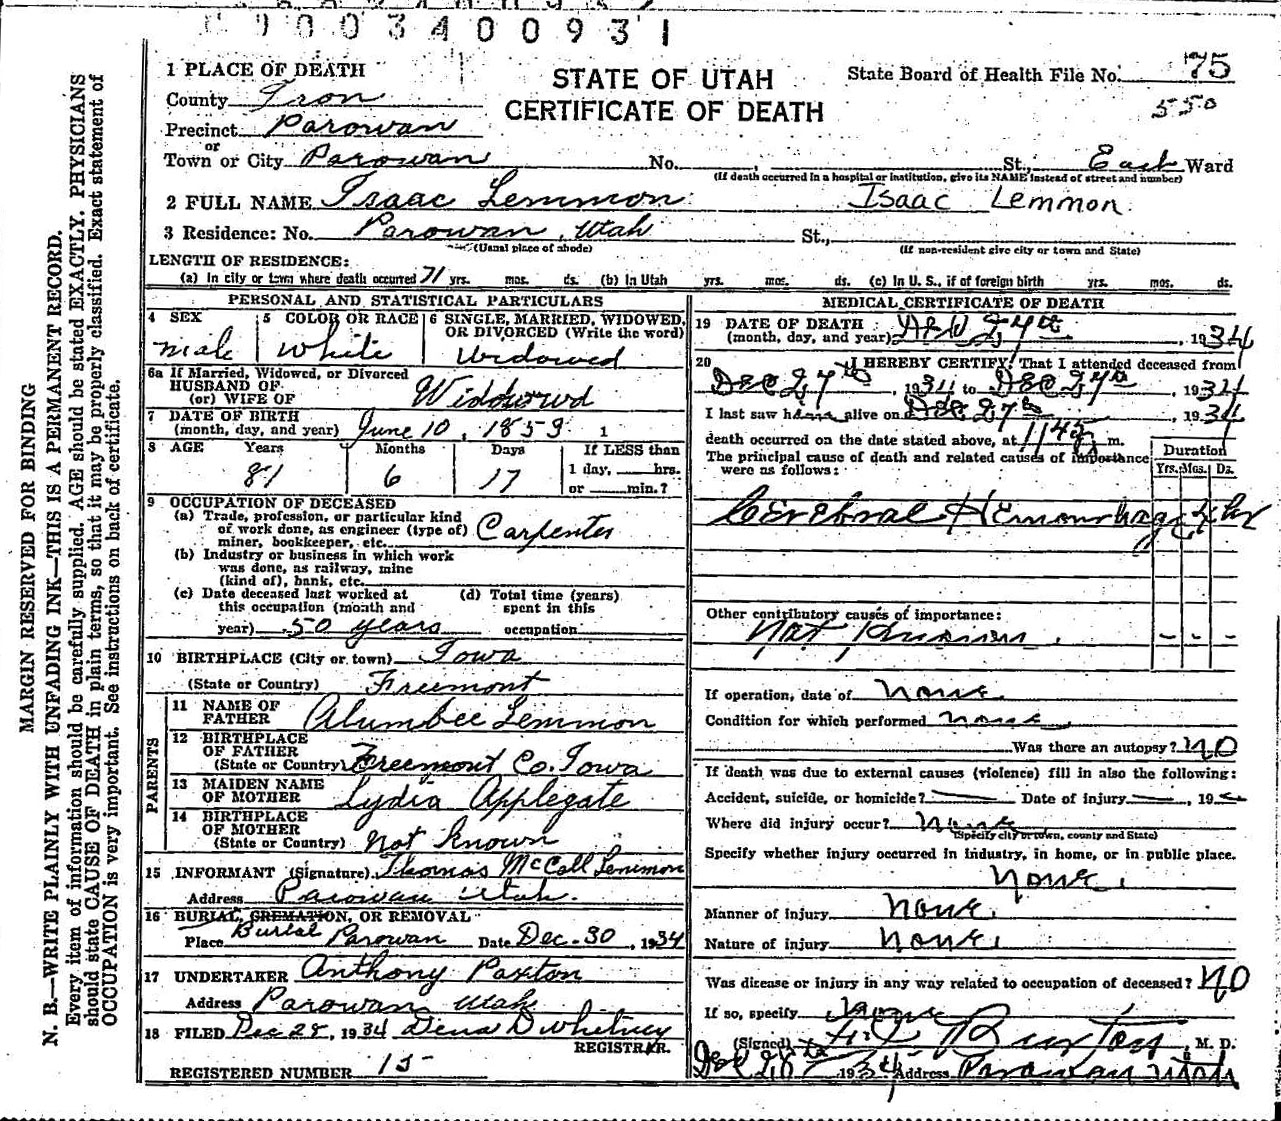 C 9 0 0 3 4 0 0 9 3 1
1 PLACE OF DEATH
STATE OF UTAH
CERTIFICATE OF DEATH
State Board of Health File No. 75
550
County Iron
Precinct Parowan
or
Town or City Parowan No. , St., East Ward
(If death occurred in a hospital or institution, give its NAME instead of street and number)
2 FULL NAME Isaac Lemmon Isaac Lemmon
3 Residence: No. Parowan, Utah St.,
(Usual place of abode) (If non-resident give city or town and State)
LENGTH OF RESIDENCE:
(a) In city or town where death occurred 71 yrs. mos. ds. (b) In Utah yrs. mos. ds. (c) In U. S., if of foreign birth yrs. mos. ds.
PERSONAL AND STATISTICAL PARTICULARS
4 SEX 5 COLOR OR RACE 6 SINGLE, MARRIED, WIDOWED, OR DIVORCED (Write the word)
male White Widowed
6a If Married, Widowed, or Divorced
HUSBAND OF
(or) WIFE OF Widdowed
7 DATE OF BIRTH
(month, day, and year) June 10, 1853 1
8 AGE Years Months Days If LESS than
1 day, hrs.
or min.?
81 6 17
9 OCCUPATION OF DECEASED
(a) Trade, profession, or particular kind
of work done, as engineer (type of)
miner, bookkeeper, etc. Carpenter
(b) Industry or business in which work
was done, as railway, mine
(kind of), bank, etc.
(c) Date deceased last worked at
this occupation (month and
year) 50 years
(d) Total time (years)
spent in this
occupation
10 BIRTHPLACE (City or town) Iowa
(State or Country) Freemont
PARENTS
11 NAME OF
FATHER Alumbee Lemmon
12 BIRTHPLACE
OF FATHER
(State or Country) Freemont Co. Iowa
13 MAIDEN NAME
OF MOTHER Lydia Applegate
14 BIRTHPLACE
OF MOTHER
(State or Country) Not Known
15 INFORMANT (Signature) Thomas McCall Lemmon
Address Parowan Utah.
16 BURIAL, CREMATION, OR REMOVAL
Burial
Place Parowan Date Dec. 30, 1934
17 UNDERTAKER Anthony Paxton
Address Parowan Utah
18 FILED Dec 28, 1934 Dena D Whitney
REGISTRAR.
REGISTERED NUMBER 15
MEDICAL CERTIFICATE OF DEATH
19 DATE OF DEATH
(month, day, and year) Dec 27th, 1934
20 I HEREBY CERTIFY, That I attended deceased from
Dec 27th, 1934 to Dec 27th, 1934
I last saw him alive on Dec. 27th, 1934
death occurred on the date stated above, at 1145 m.
The principal cause of death and related causes of importance
were as follows:
Duration
Yrs. Mos. Ds.
Cerebral Hemorrhage
Other contributory causes of importance:
Not Known.
If operation, date of None.
Condition for which performed None
Was there an autopsy? NO
If death was due to external causes (violence) fill in also the following:
Accident, suicide, or homicide? Date of injury , 19
Where did injury occur? None
(Specify city or town, county and State)
Specify whether injury occurred in industry, in home, or in public place.
None.
Manner of injury None.
Nature of injury None.
Was disease or injury in any way related to occupation of deceased? NO
If so, specify None
(Signed) Burton, M. D.
Dec 28th 1934 Address Parowan Utah
MARGIN RESERVED FOR BINDING
N. B.—WRITE PLAINLY WITH UNFADING INK—THIS IS A PERMANENT RECORD.
Every item of information should be carefully supplied. AGE should be stated EXACTLY. PHYSICIANS
should state CAUSE OF DEATH in plain terms, so that it may be properly classified. Exact statement of
OCCUPATION is very important. See instructions on back of certificate.